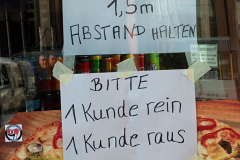 1,5m
ABSTAND HALTEN
BITTE
1 Kunde rein
1 Kunde raus